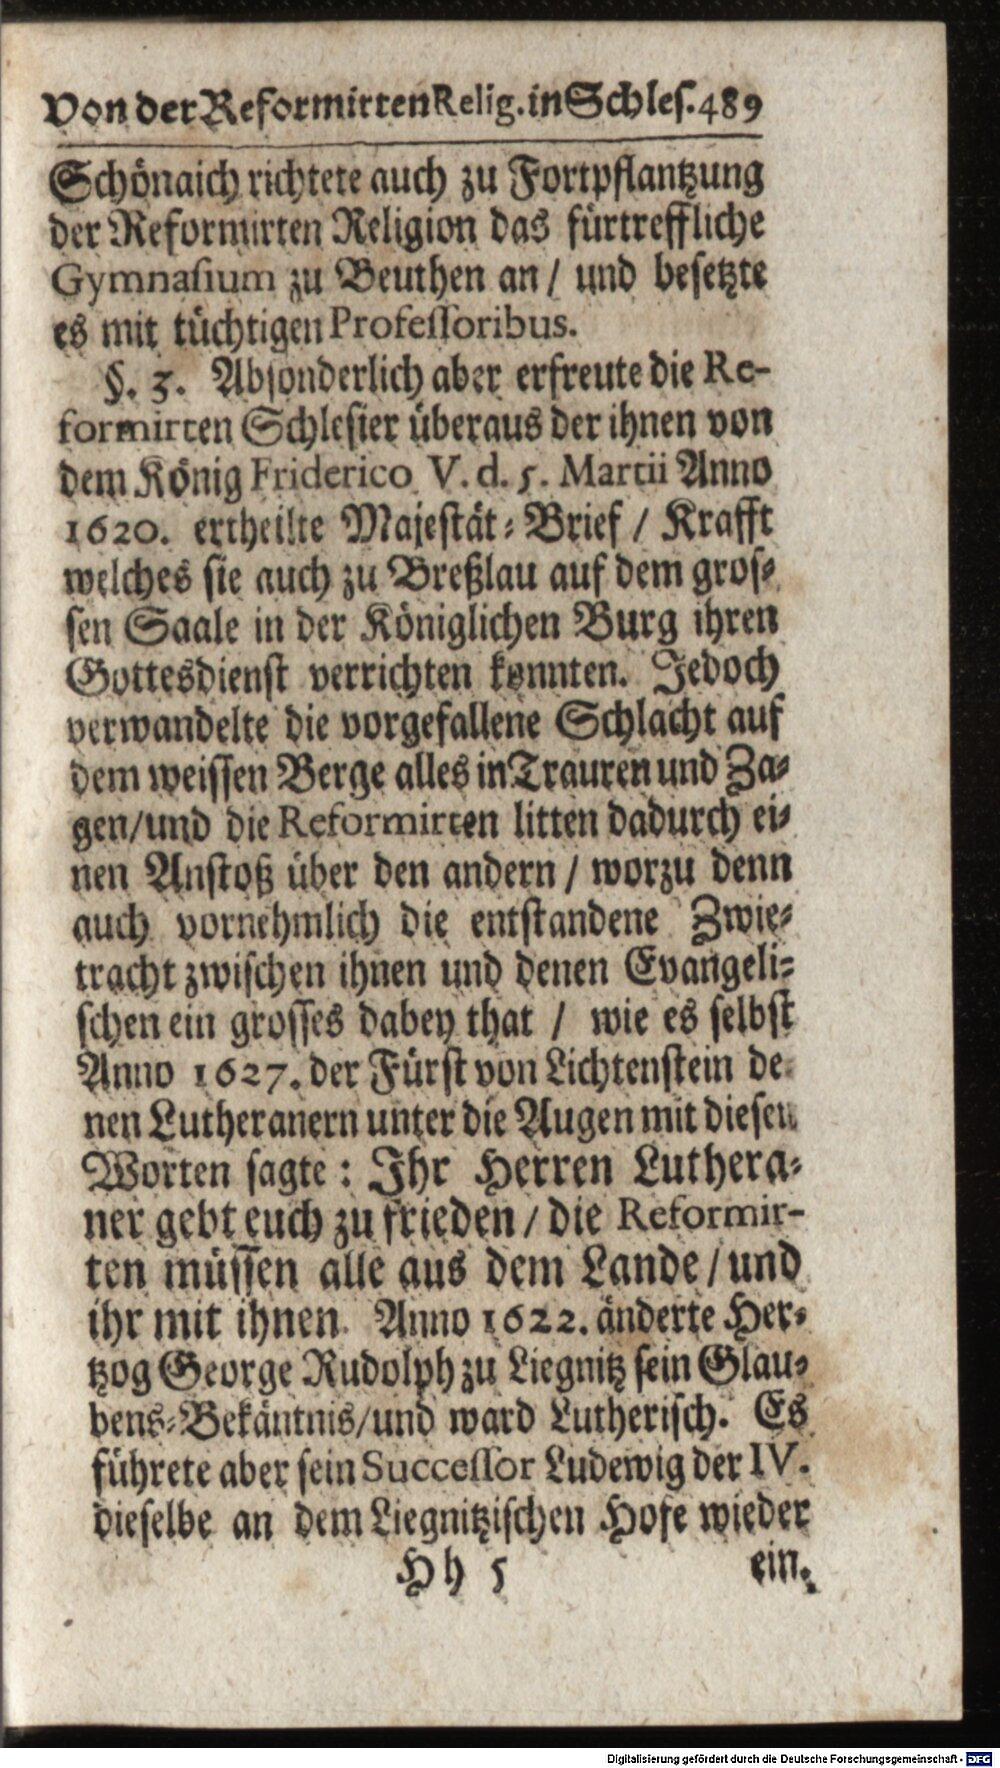 Von der Reformirten Relig. in Schles. 489
Schönaich richtete auch zu Fortpflantzung
der Reformirten Religion das fürtreffliche
Gymnasium zu Beuthen an / und besetzte
es mit tüchtigen Professoribus.
§. 3. Absonderlich aber erfreute die Re-
formirten Schlesier überaus der ihnen von
dem König Friderico V. d. 5. Martii Anno
1620. ertheilte Majestät-Brief / Krafft
welches sie auch zu Breßlau auf dem gros-
sen Saale in der Königlichen Burg ihren
Gottesdienst verrichten konnten. Jedoch
verwandelte die vorgefallene Schlacht auf
dem weissen Berge alles in Trauren und Za-
gen/und die Reformirten litten dadurch ei-
nen Anstoß über den andern / worzu denn
auch vornehmlich die entstandene Zwie-
tracht zwischen ihnen und denen Evangeli-
schen ein grosses dabey that / wie es selbst
Anno 1627. der Fürst von Lichtenstein de
nen Lutheranern unter die Augen mit diesen
Worten sagte : Ihr Herren Luthera-
ner gebt euch zu frieden / die Reformir-
ten müssen alle aus dem Lande / und
ihr mit ihnen. Anno 1622. änderte Her-
tzog George Rudolph zu Liegnitz sein Glau-
bens-Bekäntnis/und ward Lutherisch. Es
führete aber sein Successor Ludewig der IV.
dieselbe an dem Liegnitzischen Hofe wieder
Hh 5 ein.
Digitalisierung gefördert durch die Deutsche Forschungsgemeinschaft - DFG